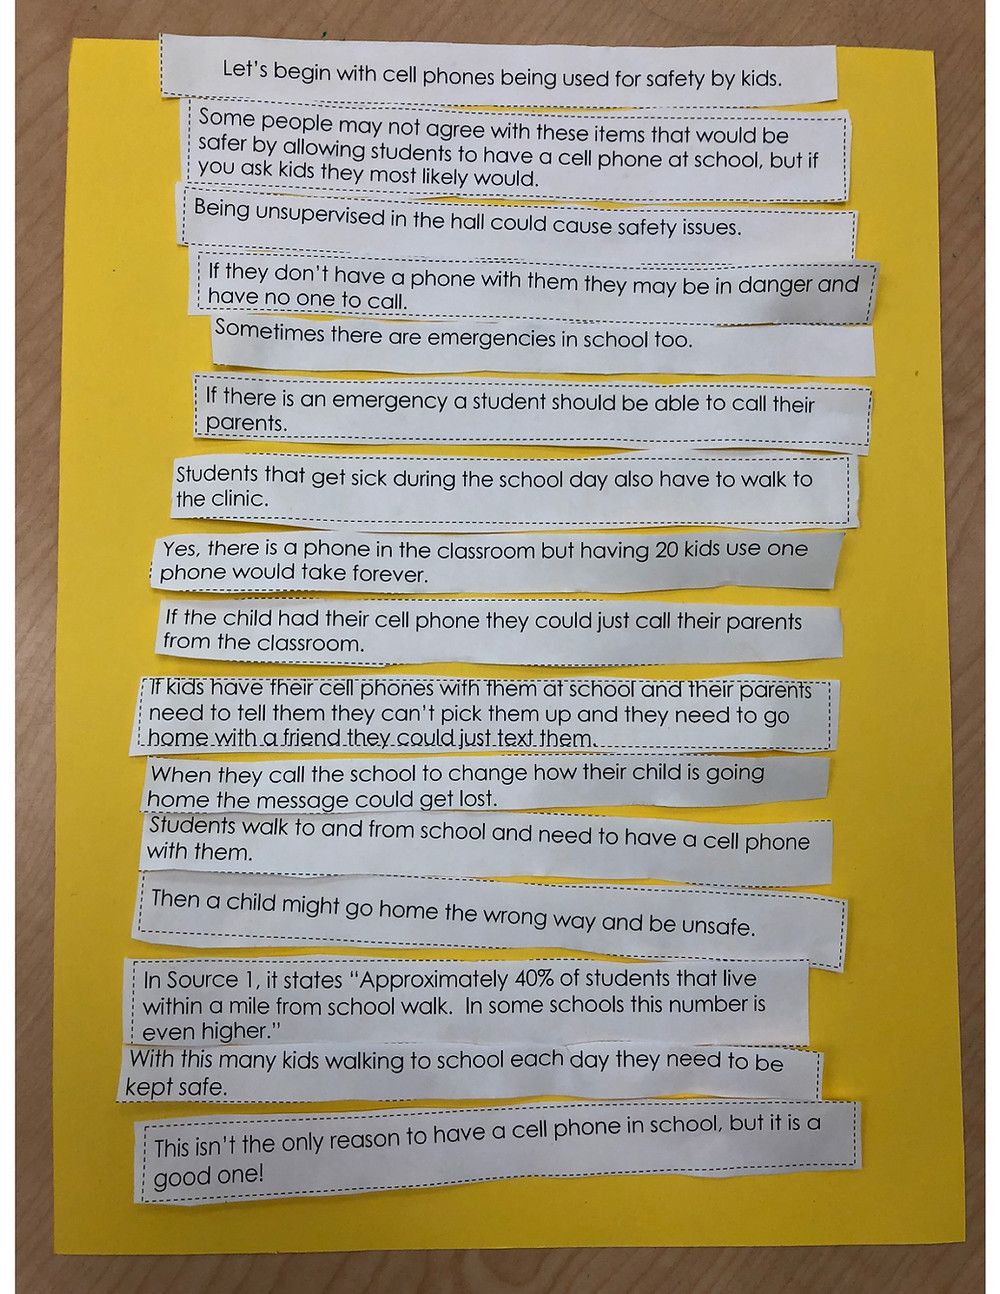 Let's begin with cell phones being used for safety by kids.
Some people may not agree with these items that would be
safer by allowing students to have a cell phone at school, but if
you ask kids they most likely would.
Being unsupervised in the hall could cause safety issues.
If they don't have a phone with them they may be in danger and
have no one to call.
Sometimes there are emergencies in school too.
If there is an emergency a student should be able to call their
parents.
Students that get sick during the school day also have to walk to
the clinic.
Yes, there is a phone in the classroom but having 20 kids use one
phone would take forever.
If the child had their cell phone they could just call their parents
from the classroom.
If kids have their cell phones with them at school and their parents
need to tell them they can't pick them up and they need to go
home with a friend they could just text them.
When they call the school to change how their child is going
home the message could get lost.
Students walk to and from school and need to have a cell phone
with them.
Then a child might go home the wrong way and be unsafe.
In Source 1, it states "Approximately 40% of students that live
within a mile from school walk.  In some schools this number is
even higher."
With this many kids walking to school each day they need to be
kept safe.
This isn't the only reason to have a cell phone in school, but it is a
good one!